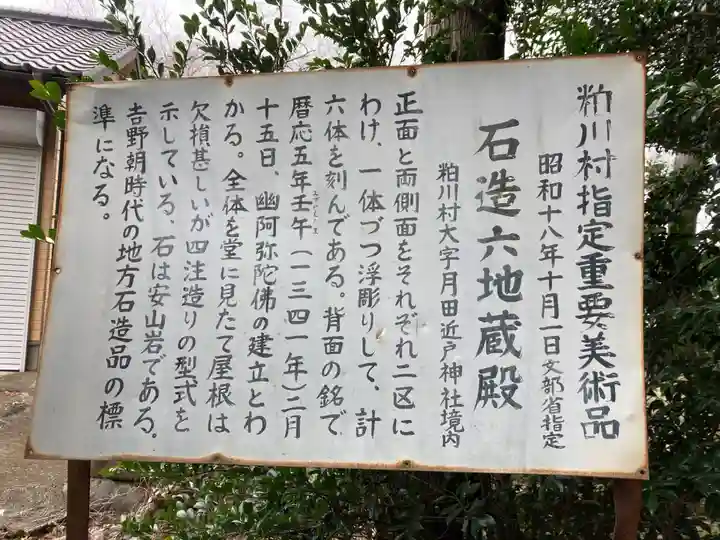 粕川村指定重要美術品
昭和十八年十月一日文部省指定
石造六地蔵殿
粕川村大字月田近戸神社境内
正面と両側面をそれぞれ二区に
わけ、一体づつ浮彫りして、計
六体を刻んである。背面の銘で
暦応五年壬午(一三四一年)二月
みずのえうま
十五日、幽阿弥陀佛の建立とわ
かる。全体を堂に見たて屋根は
欠損甚しいが四注造りの型式を
示している、石は安山岩である。
吉野朝時代の地方石造品の標
準になる。